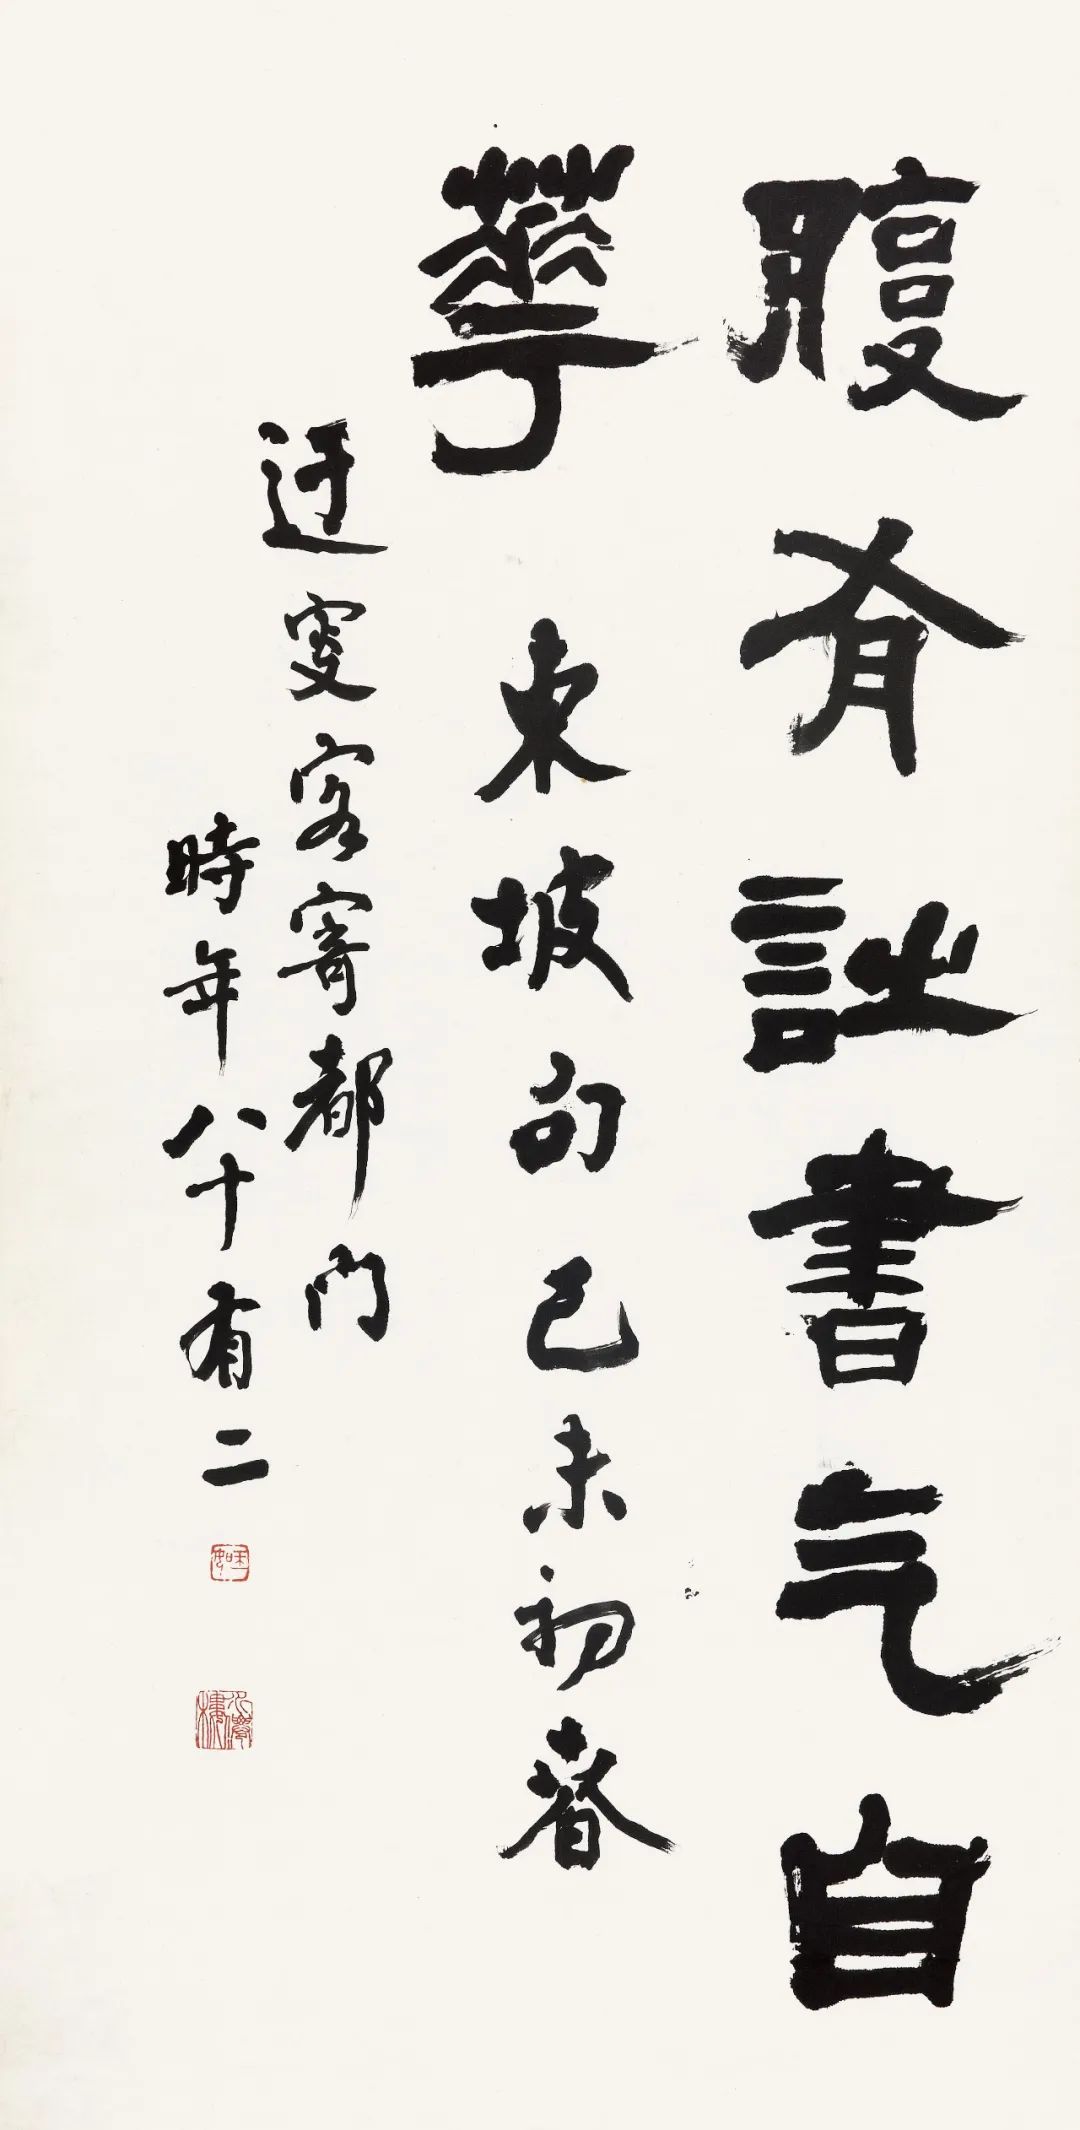 腹有詩書气自
華 東坡句 己未初春
迂叟客寄都門
時年八十有二